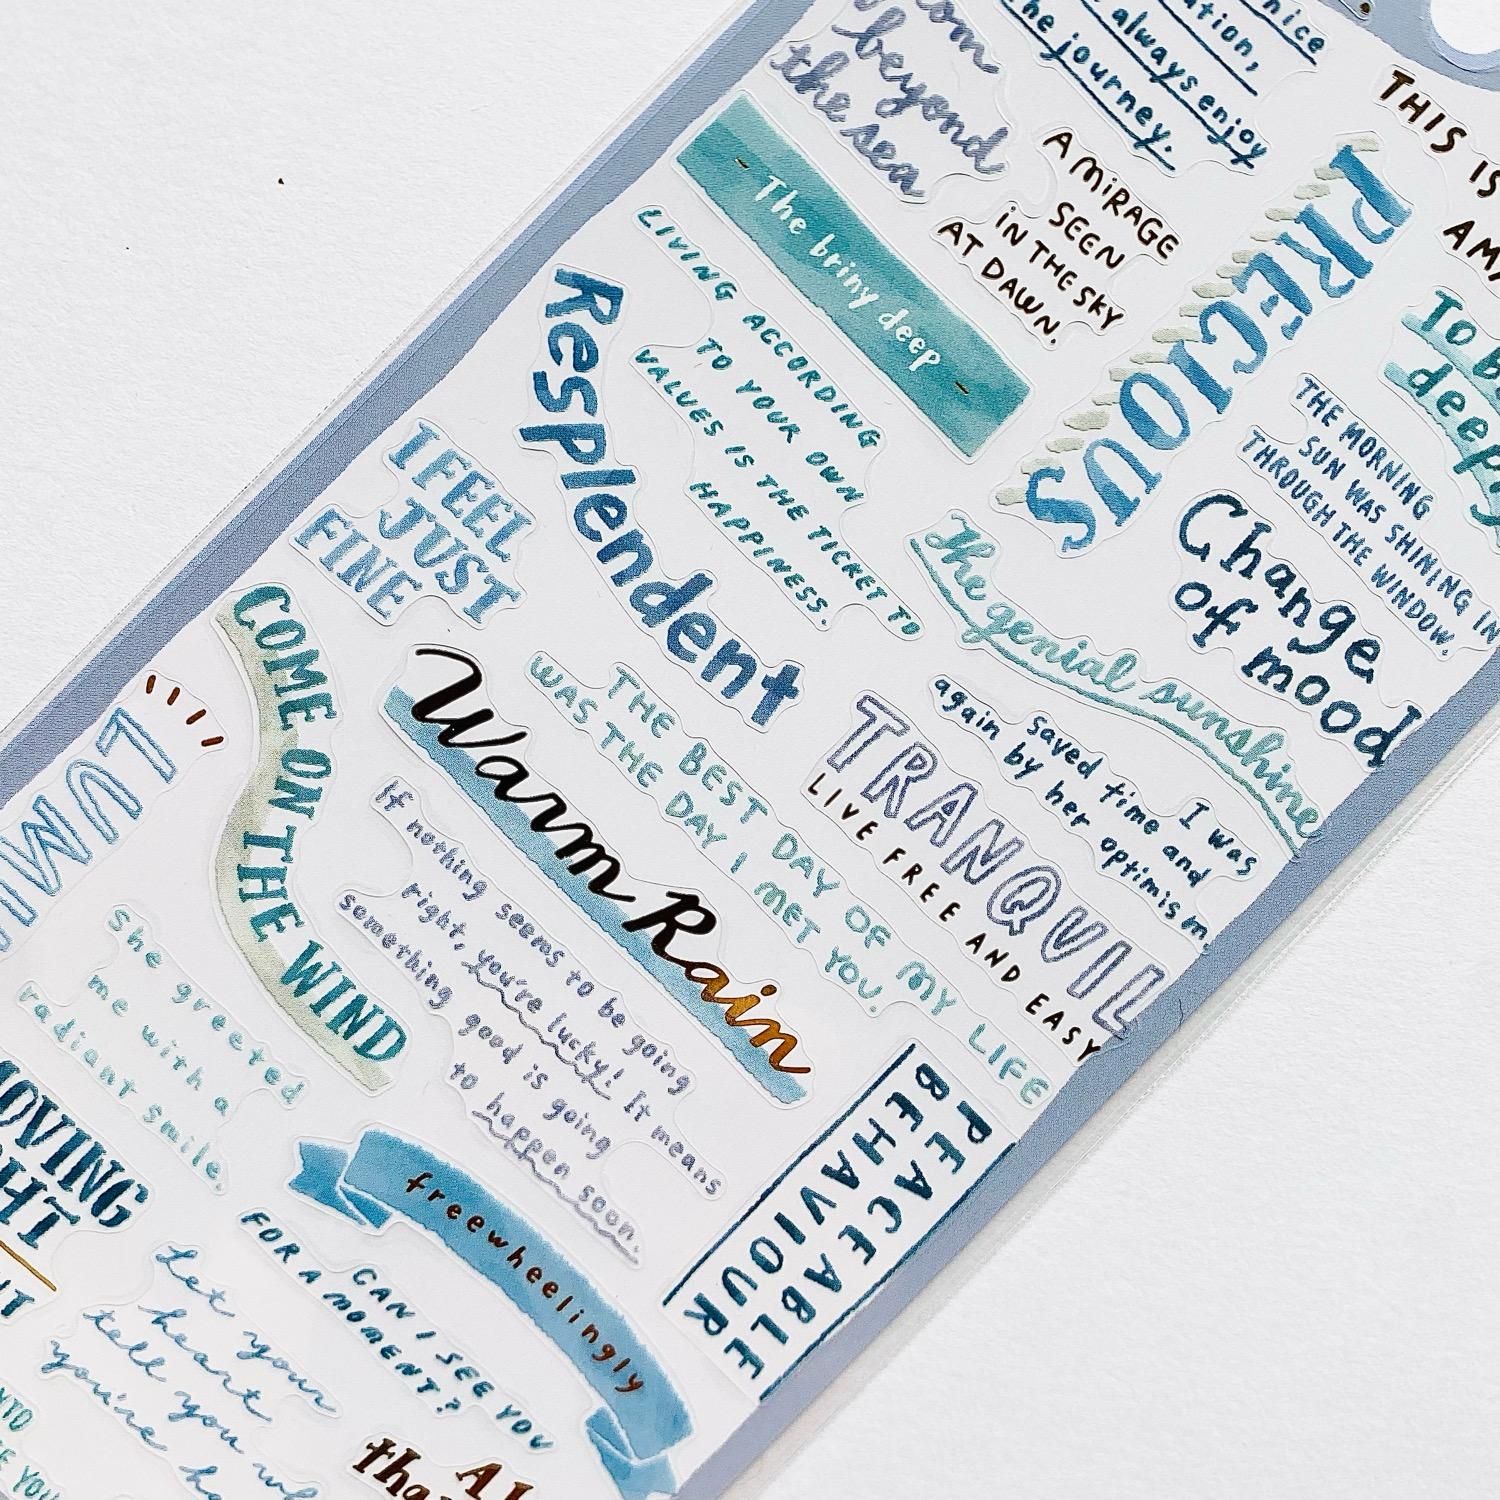 nice
always enjoy
the journey.
beyond
the sea
- The briny deep -
A MIRAGE
SEEN
IN THE SKY
AT DAWN.
THIS IS
PRECIOUS
LIVING ACCORDING
TO YOUR OWN
VALUES IS THE TICKET TO
HAPPINESS.
Resplendent
THE MORNING
SUN WAS SHINING IN
THROUGH THE WINDOW.
Change
of mood
The genial sunshine
I FEEL
JUST
FINE
COME ON THE WIND
Warm Rain
THE BEST DAY OF MY LIFE
WAS THE DAY I MET YOU.
TRANQUIL
LIVE FREE AND EASY
I was
saved time and
again by her optimism.
If nothing seems to be going
right, you're lucky! It means
something good is going
to happen soon.
PEACEABLE
BEHAVIOUR
She greeted
me with a
radiant smile.
freewheelingly
CAN I SEE YOU
FOR A MOMENT?
Let your
heart
tell you
you're